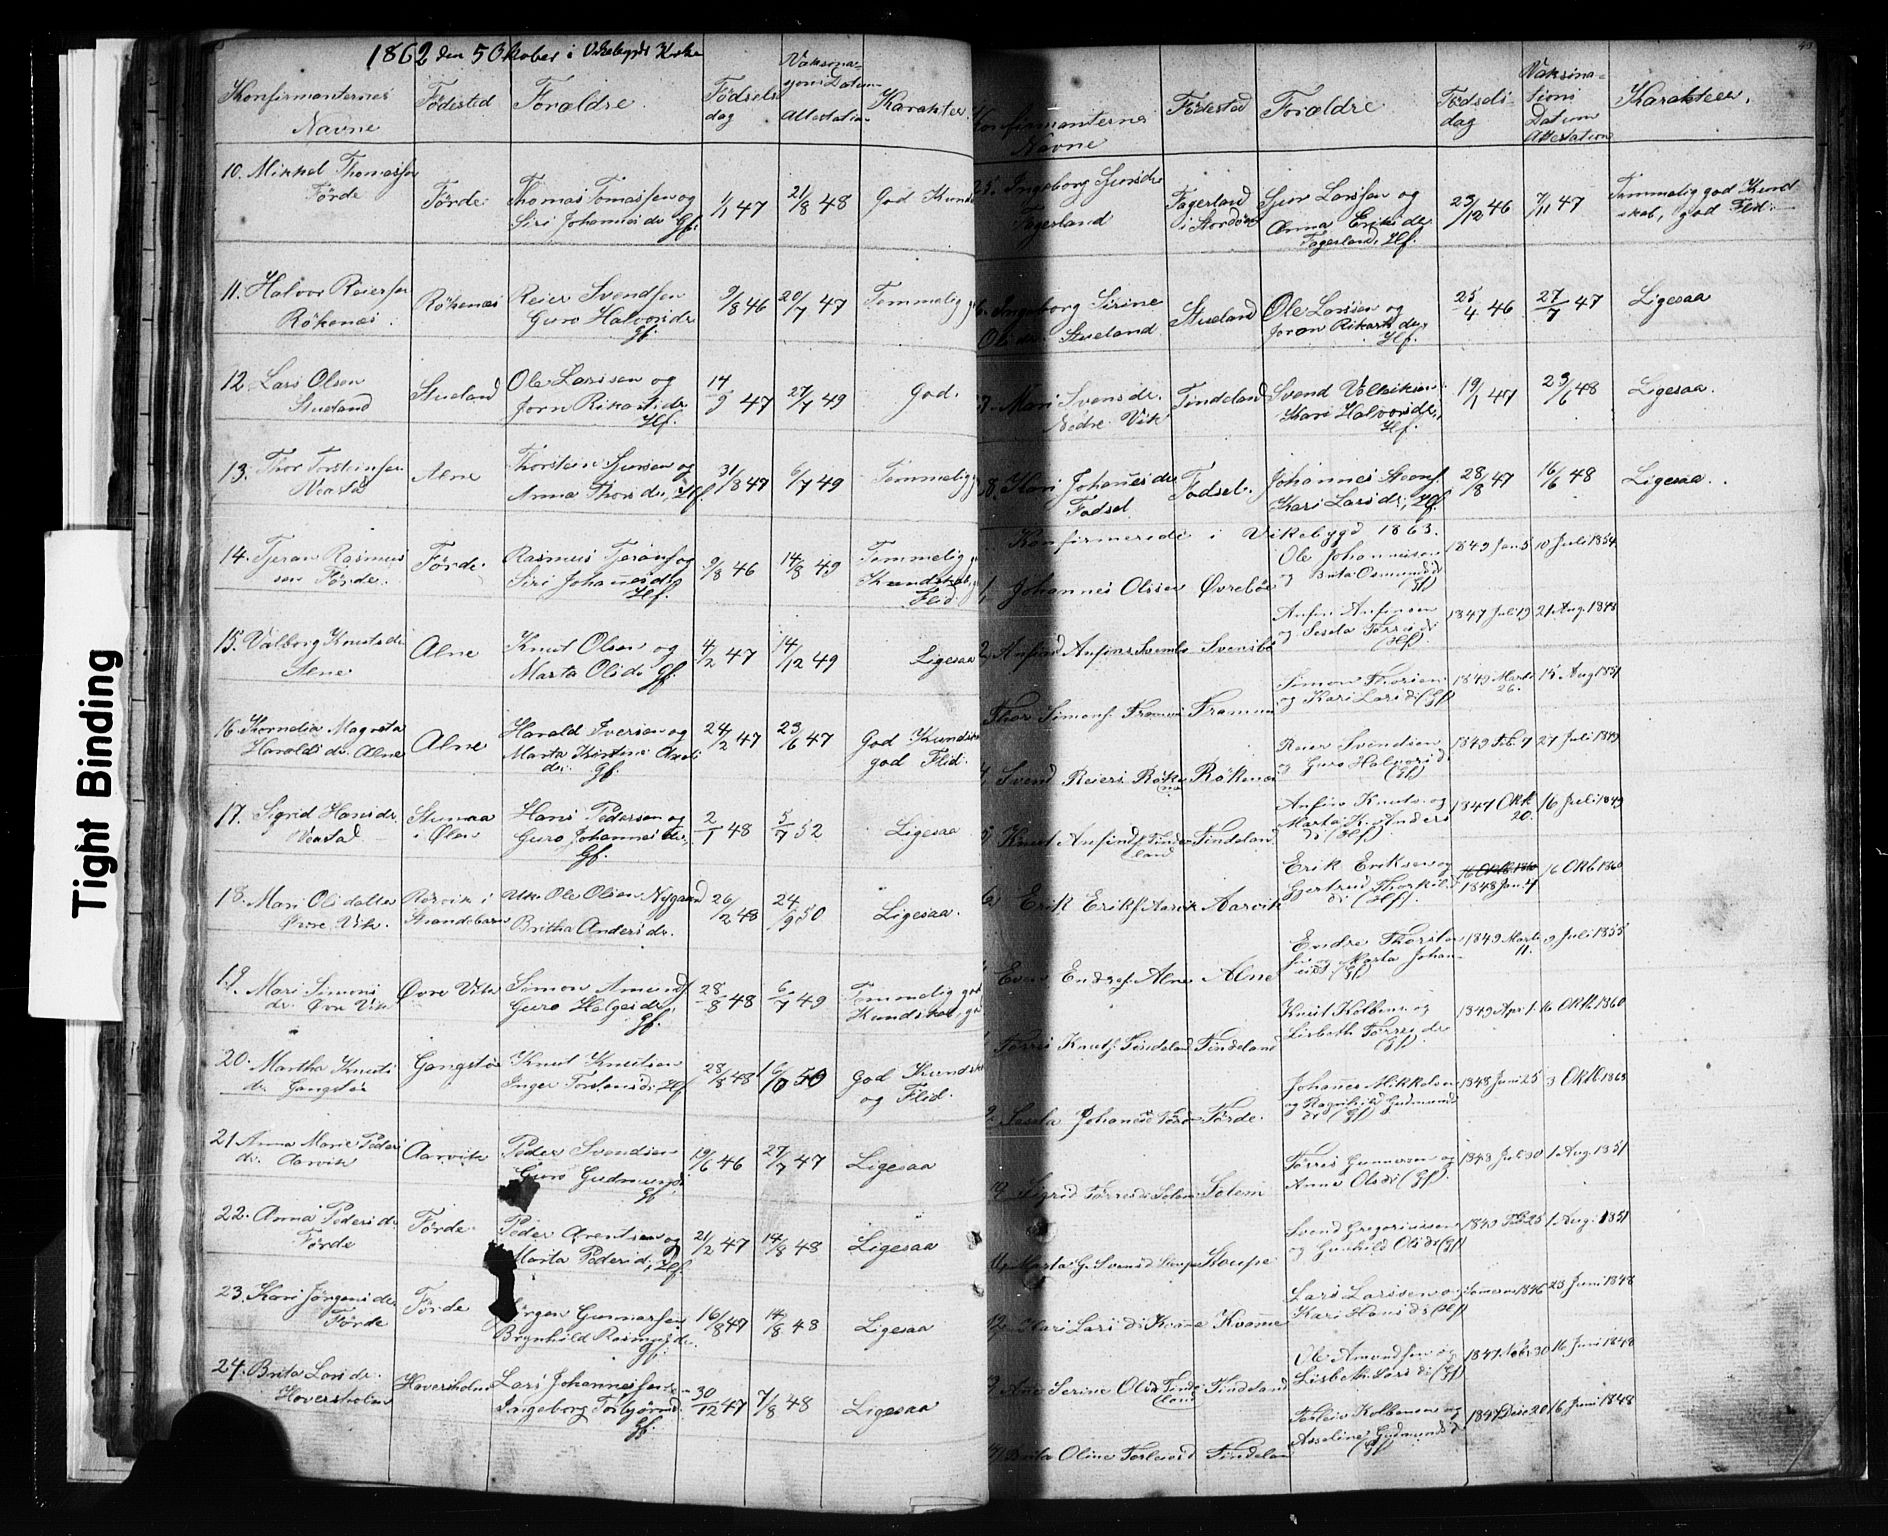 Tight Binding
1862 den 5 Oktober i Vikebygds Kirke
Konfirmanternes Navne
Fødested
Forældre
Fødsels dag
Vaksina-
Datum
Attestation
Karakter
10. Mikkel Thomassen Förde
Förde
Thomas Tomassen og
Siri Johannesdr Gf.
1/1 47
21/8 48
God Kunds
11. Halvor Reiersen
Rökenes
Rökenes
Reier Svendsen
Guro Halvorsdr
Gf.
9/8 46
20/7 47
Temmelig
12. Lars Olsen
Stueland
Stueland
Ole Larssen og
Jorn Rikartsdr
Hf.
14/9 47
27/7 49
God.
13. Thor Torsteinsen
Alne
Thorstein Sjursen og
Anna Thorsdr, Hf.
31/8 47
6/7 49
Temmelig
14. Tjeran Rasmus
sen Förde.
Förde
Rasmus Tjeransen og
Siri Johanesdtr
Hf.
9/8 46
14/8 49
Temmelig
Kundskab,
Flid.
15. Valborg Knutsdr
Alne
Alne
Knut Olsen og
Marta Olsdr Gf.
4/2 47
14/12 49
Ligesaa
16. Kornelia Magreta
Haraldsdr. Alne
Alne
Harald Iversen og
Marta Kirstine
dr. Gf.
24/2 47
23/6 47
God Kundsk
god Flid.
17. Sigrid Hansdr.
i Ølen
Hans Pedersen og
Guro Johannesdtr,
Gf.
2/1 48
5/7 52
Ligesaa
18. Mari Olsdatter
Øvre Vik.
i
Strandebarm
Ole Olsen Nygaard
Britha Andersdr.
26/2 48
24/9 50
Ligesaa.
19. Mari Simons
dr. Øvre Vik.
Øvre Vik
Simon Amunds.
Guro Helgesdr,
Gf.
28/8 48
6/7 49
Temmelig god
Kundskab, god
20. Martha Knuts
dr. Gangstø
Gangstø
Knut Knutsen
Inger Torstensdr Hf.
28/8 48
16/10 50
God Kundsk
og Flid.
21. Anna Marie Peders
dr. Aarvik
Aarvik
Peder Svendsen
Guro Gudmundsd
Gf.
19/6 46
27/7 47
Ligesaa
22. Anna Pedersdr
Förde
Förde
Peder Arentsen og
Marta Pedersd, Hf.
21/2 47
14/8 48
Ligesaa
23. Kari Jörgensdr
Förde
Förde
Jörgen Gunnarsen
Brynhild Rasmusdr.
Gf.
16/8 47
14/8 48
Ligesaa
24. Brita Larsdr.
Hoversholm
Hoversholm
Lars Johannessen
Ingeborg Torbjörnsd.
Gf.
30/12 47
7/8 48
Ligesaa
Konfirmanternes
Navne
Fødested
Forældre
Fødsels-
dag
Vaksina-
tions
Datum
Attestation
Karakteer.
25. Ingeborg Sjursdr
Fagerland
Fagerland
i Stordøen
Sjur Larssen og
Anna Eriksdr
Fagerland, Hf.
23/12 46
7/11 47
Temmelig god Kund
skab, god Flid.
Ingeborg Sirine
Olsdr. Stueland
Stueland
Ole Larssen og
Joran Rikartsdr,
Hf.
25/4 46
27/7 47
Ligesaa
Mari Svensdr.
Nedre Vik
Tindeland
Svend Velleiksen
Kari Halvorsdr,
Hf.
19/1 47
23/6 48
Ligesaa.
Kari Johanesdr
Fadsel.
Johannes
Kari Larsdr, Hf.
28/8 47
16/6 48
Ligesaa.
Konfirmerede i Vikebygd 1863.
1, Johannes Olsen Øvrebøe
Ole Johannesen
og Brita Osmundsd
(Gf)
1849 Jan 5
10 Juli 1854
2, Anfind Anfins Svensbø
Svensbø
Anfin Anfinsen
og Sesela Torrisd
(Hf).
1847 Juli 19
21 Aug. 1848
Thor Simons. Framnes
Framnes
Simon Thorsen
og Kari Larsd (Gf)
1849 Marts
26.
15 Aug 1851
4, Svend Reiers Rökenes
Rökenes
Reier Svendsen
og Guro Halvorsd
(Gf)
1849 Feb 7
27 Juli 1849
5, Knut Anfinds. Tinde
land
Tindeland
Anfin Knuts. og
Marta K. Anders
d (Hf)
1847 Okt
20.
16 Juli 1849
6 Erik Eriks. Aarvik Aarvik
Erik Eriksen og
Gjertrud Thorkils
d (Hf).
1848 Jan 4
16 Okt 1860
Even Endres. Alne Alne
Endre Thorsten
sen og Marta Johan
1849 Marts
11.
9 Juli 1855
Torris Knuts. Tindeland Tindeland
Knut Kolbens. og
Lisbeth Torrisdr
(Gf)
1849 Apr 1.
16 Okt. 1860
Sesela Johanesd Förde Förde.
Johanes Mikkelsen
og Ragnhild Gudmunds
d (Gf)
1848 Juni 25
3 Okt 1863
Sigrid Torrisd Solem Solem
Torris Gunnarsen og
Anna Olsd (Gf).
1848 Juli 30
1. Aug. 1851
Marta G. Svensd
Svend Gregoriussen
og Gunhild Olsd (Gf)
1849 Feb 25
1. Aug. 1851
12 Mari Larsd Kvame Kvame
Lars Larssen og
Kari Hansd (Hf)
1846
23 Juni 1848
Ane Serine Olsd Tinde
land
Tindeland
Ole Amundsen og
Lisbeth Larsd (Gf)
1847
30
16 Juni 1848
Brita Oline Torleivsd Tindeland
Torleiv Kolbensen og
Asseline Gudmundsd
(Gf)
1847 Dec 20
16 Juni 1848